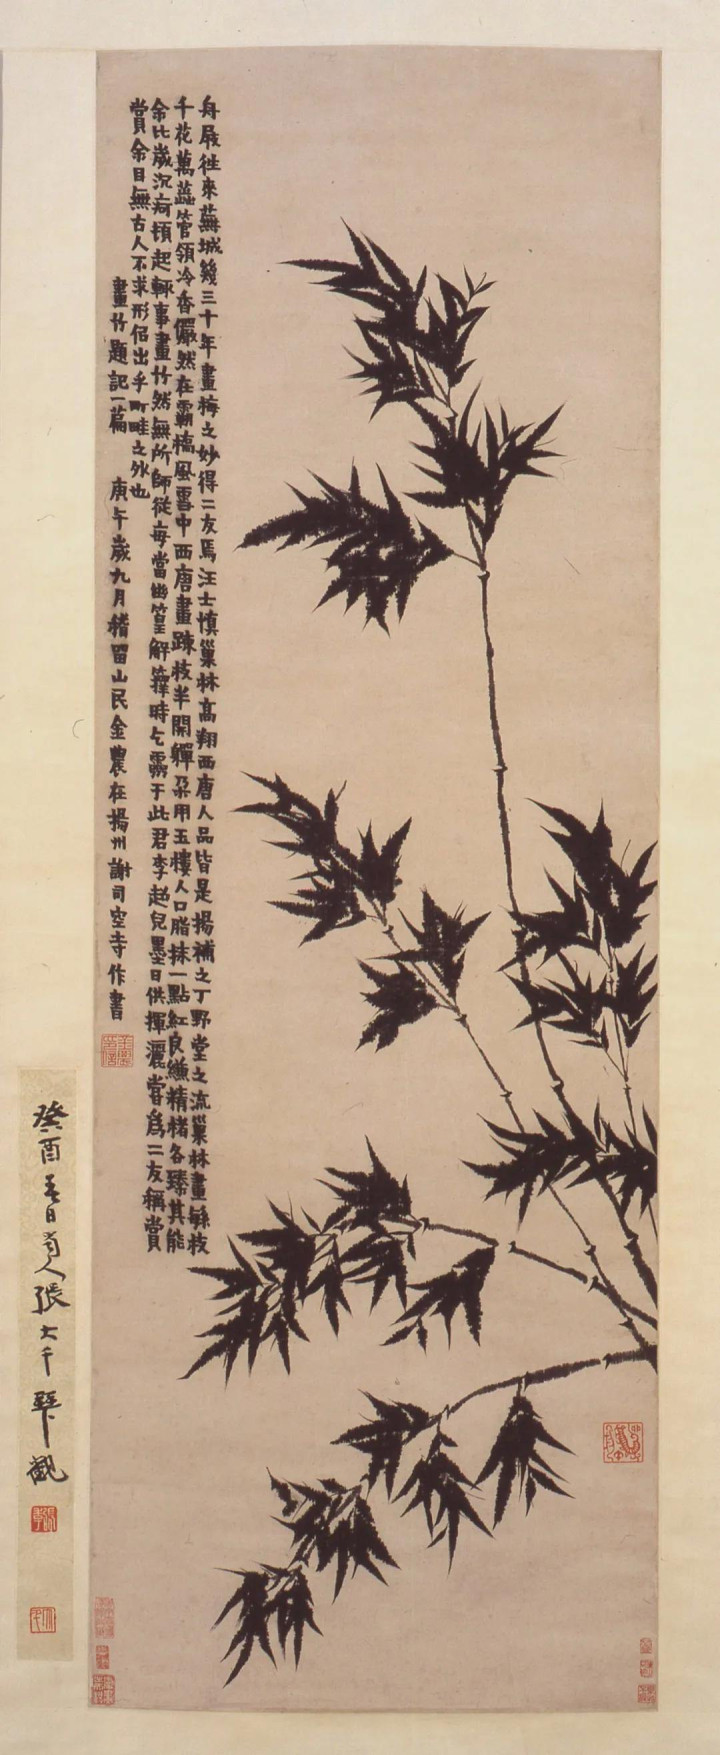 舟屐往來蕪城幾三十年畫梅之妙得二友焉汪士慎巢林高翔西唐人品皆是揚補之丁野堂之流巢林畫繇枝
千花萬蕊管領冷香儼然在霸橋風雪中西唐畫疎枝半開軃朵用玉樓人口脂抹一點紅良縑精楮各臻其能
余比歲沉疴頓起輒事畫竹然無所師從每當幽篁解籜時乞靈于此君李超兒墨日供揮灑嘗爲二友稱賞
賞余目無古人不求形似出乎町畦之外也
畫竹題記一篇 庚午歲九月稽留山民金農在揚州謝司空寺作書
癸酉春日蜀人張大千拜觀